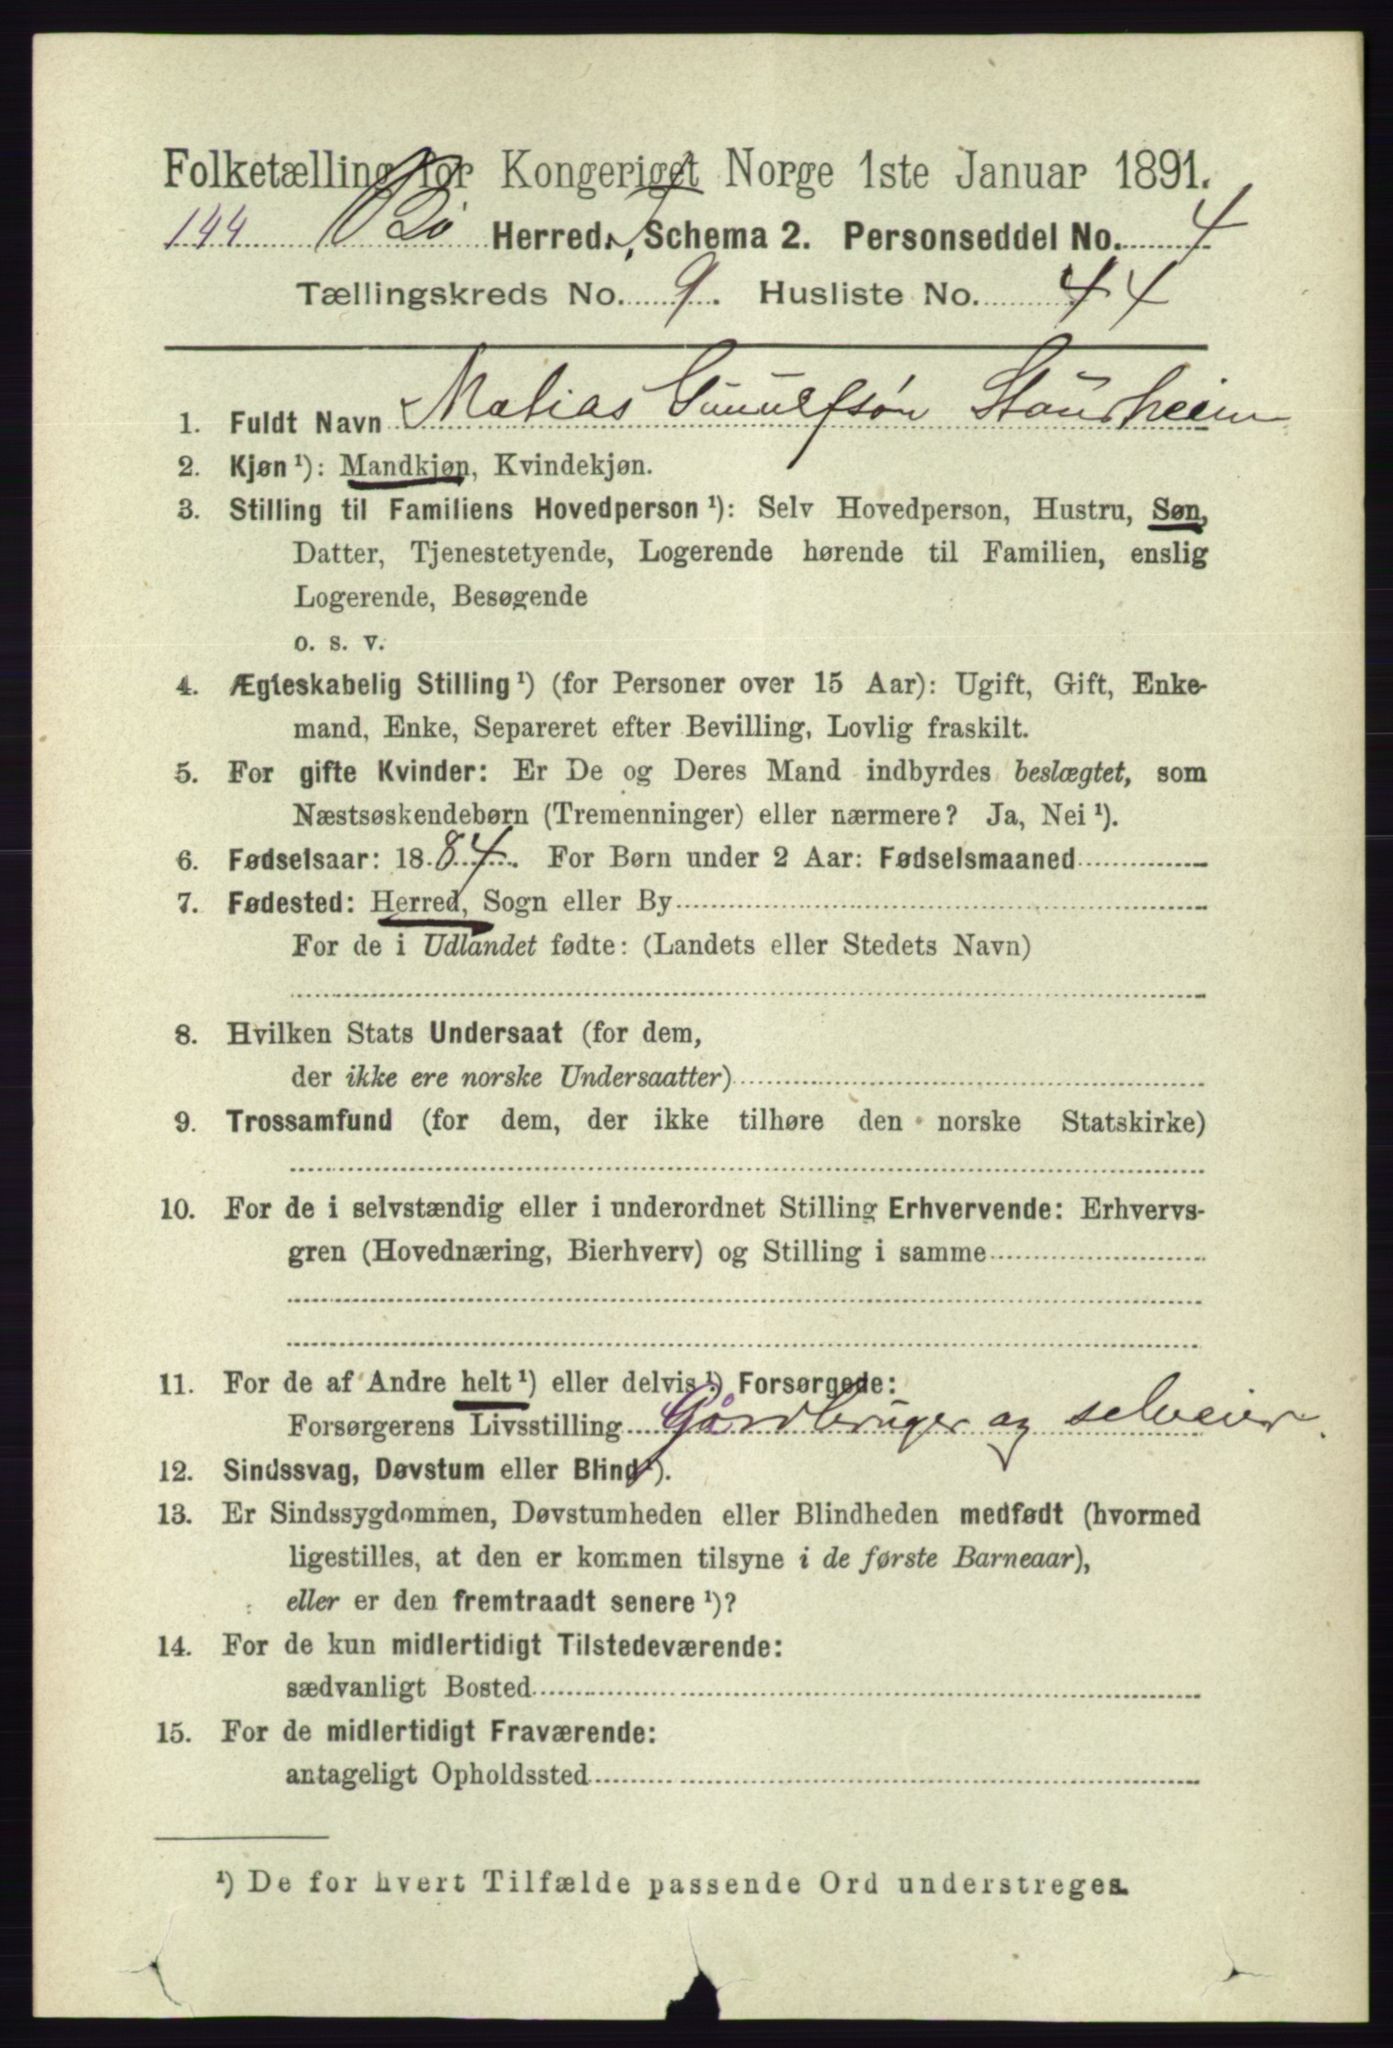 Folketælling for Kongeriget Norge 1ste Januar 1891.
144 Bø Herred. T. Schema 2. Personseddel No. 4
Tællingskreds No. 9. Husliste No. 44
1. Fuldt Navn Matias Gunulfsøn Staurheim
2. Kjøn ¹): Mandkjøn, Kvindekjøn.
3. Stilling til Familiens Hovedperson ¹): Selv Hovedperson, Hustru, Søn,
Datter, Tjenestetyende, Logerende hørende til Familien, enslig
Logerende, Besøgende
o. s. v.
4. Ægteskabelig Stilling ¹) (for Personer over 15 Aar): Ugift, Gift, Enke-
mand, Enke, Separeret efter Bevilling, Lovlig fraskilt.
5. For gifte Kvinder: Er De og Deres Mand indbyrdes beslægtet, som
Næstsøskendebørn (Tremenninger) eller nærmere? Ja, Nei ¹).
6. Fødselsaar: 1884. For Børn under 2 Aar: Fødselsmaaned
7. Fødested: Herred, Sogn eller By
For de i Udlandet fødte: (Landets eller Stedets Navn)
8. Hvilken Stats Undersaat (for dem,
der ikke ere norske Undersaatter)
9. Trossamfund (for dem, der ikke tilhøre den norske Statskirke)
10. For de i selvstændig eller i underordnet Stilling Erhvervende: Erhvervs-
gren (Hovednæring, Bierhverv) og Stilling i samme
11. For de af Andre helt ¹) eller delvis ¹) Forsørgede:
Forsørgerens Livsstilling Gårdbruger og selveier.
12. Sindssvag, Døvstum eller Blind ¹).
13. Er Sindssygdommen, Døvstumheden eller Blindheden medfødt (hvormed
ligestilles, at den er kommen tilsyne i de første Barneaar),
eller er den fremtraadt senere ¹)?
14. For de kun midlertidigt Tilstedeværende:
sædvanligt Bosted
15. For de midlertidigt Fraværende:
antageligt Opholdssted
¹) De for hvert Tilfælde passende Ord understreges.